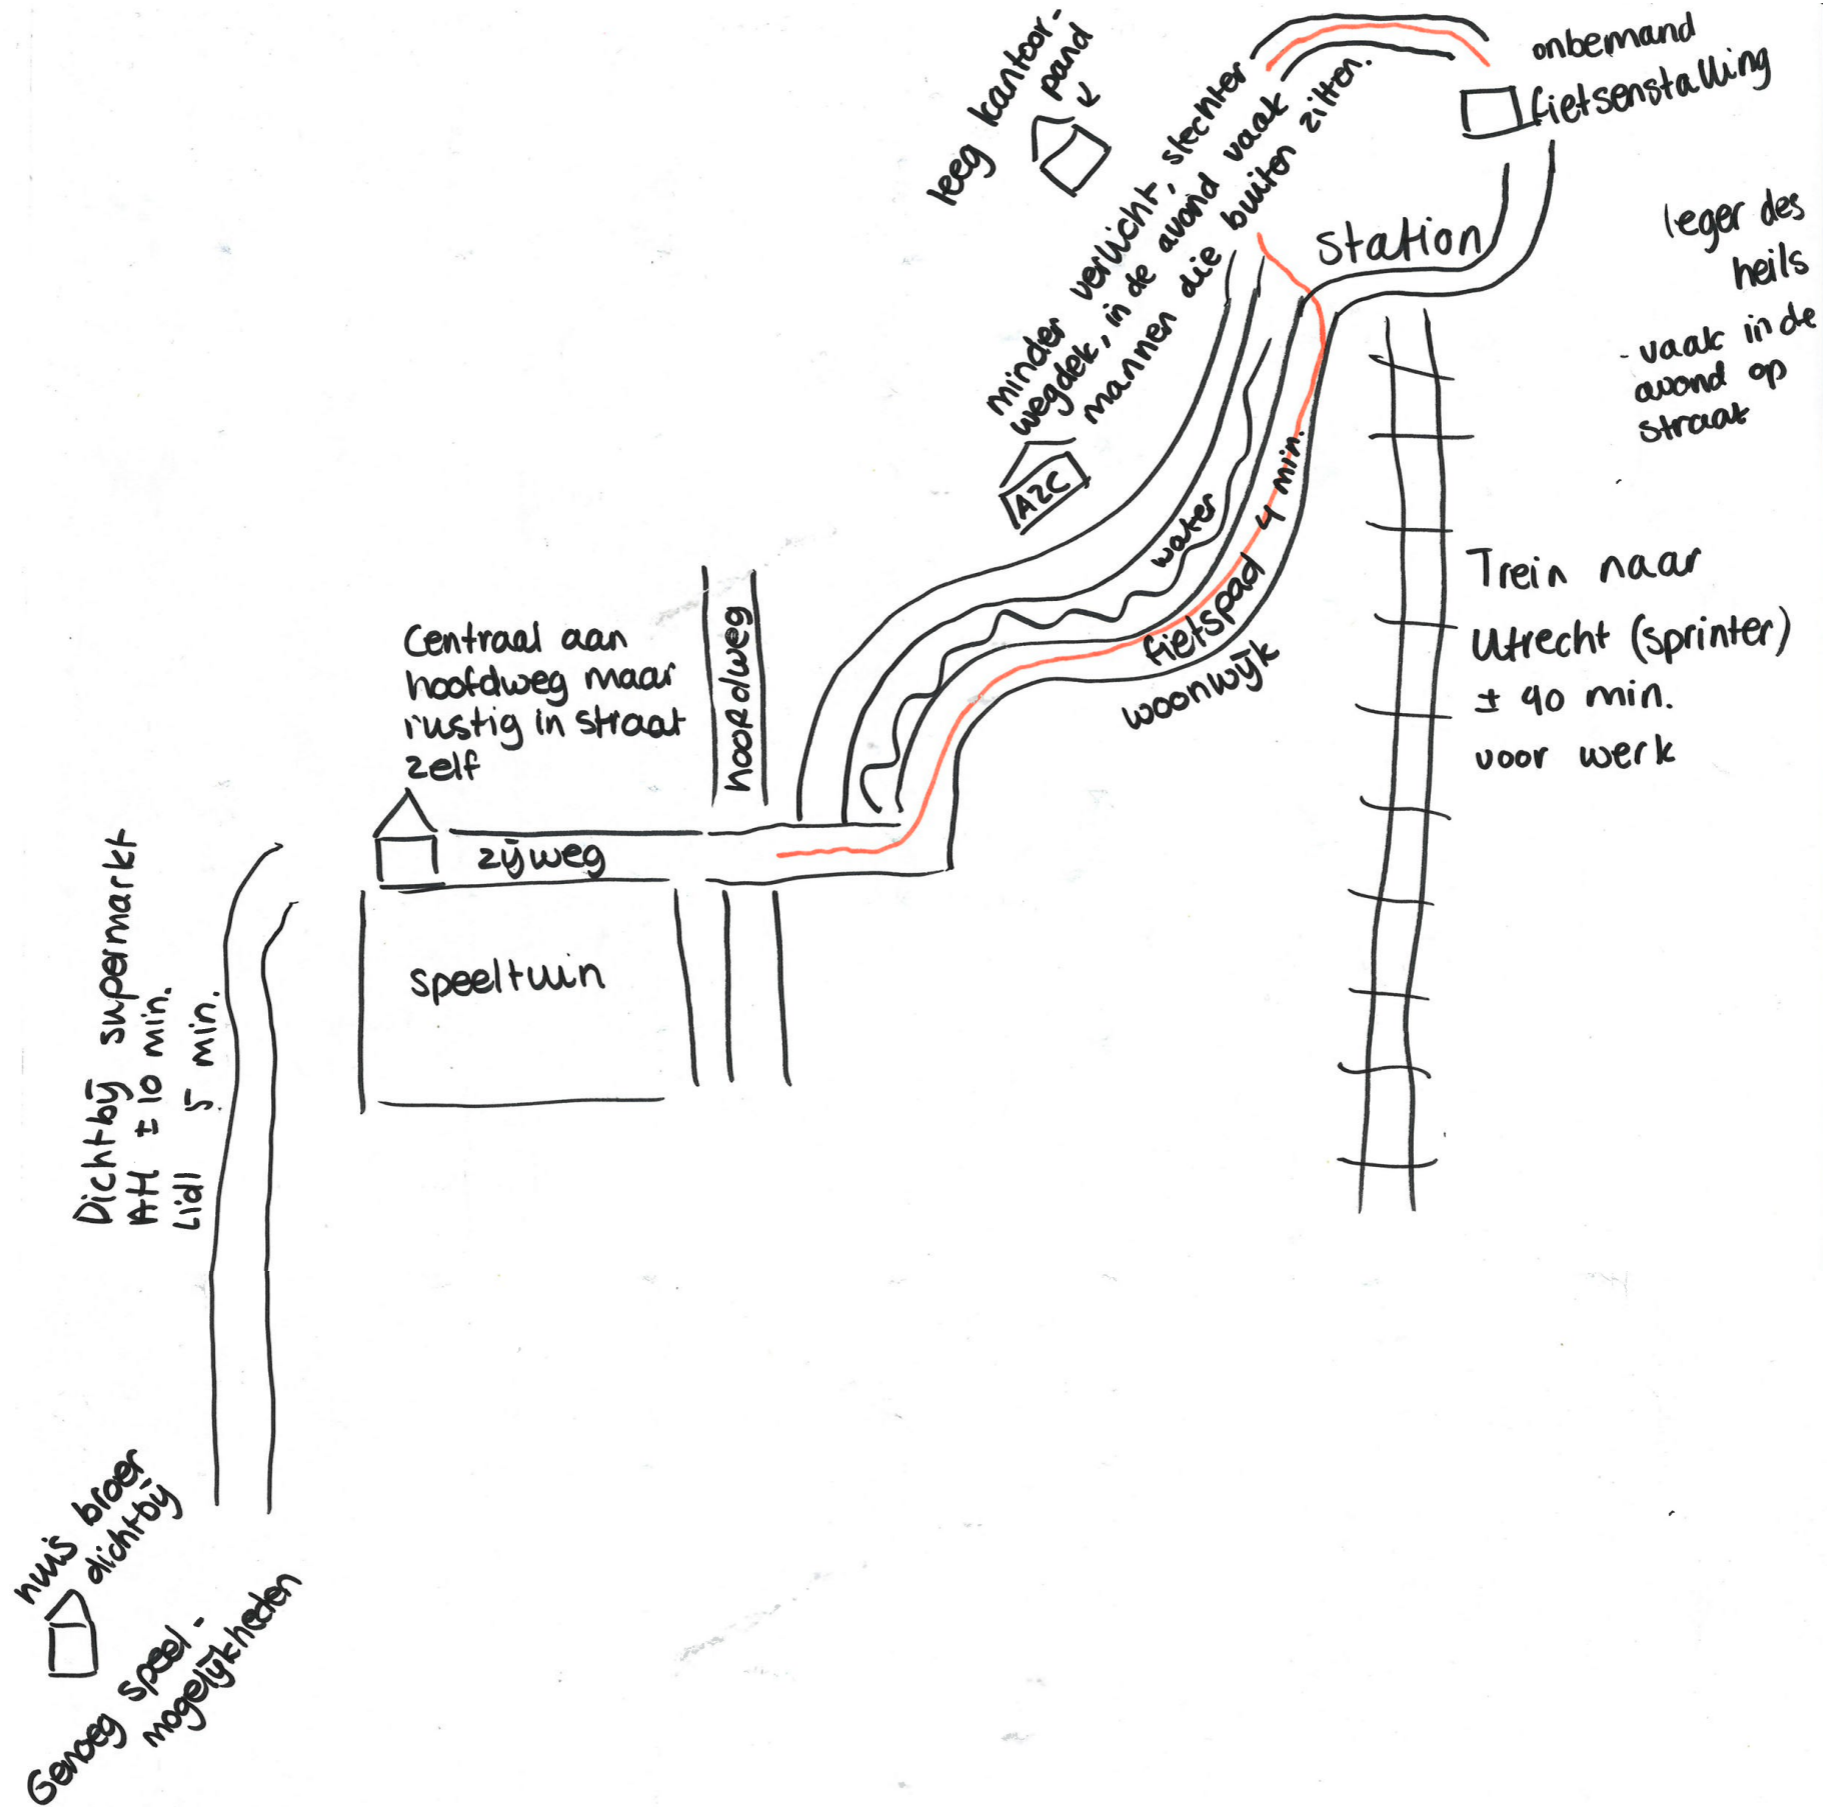 onbemand
fietsenstalling
leeg kantoor-
pand
minder verlicht, slechter
wegdek, in de avond vaak
mannen die buiten zitten.
Station
leger des
heils
- vaak in de
avond op
straat
AZC
water
fietspad 4 min.
woonwijk
Trein naar
Utrecht (sprinter)
± 40 min.
voor werk
Centraal aan
hoofdweg maar
rustig in straat
zelf
noordweg
zijweg
speeltuin
Dichtbij supermarkt
AH ± 10 min.
Lidl 5 min.
huis broer
dichtbij
Genoeg speel-
mogelijkheden